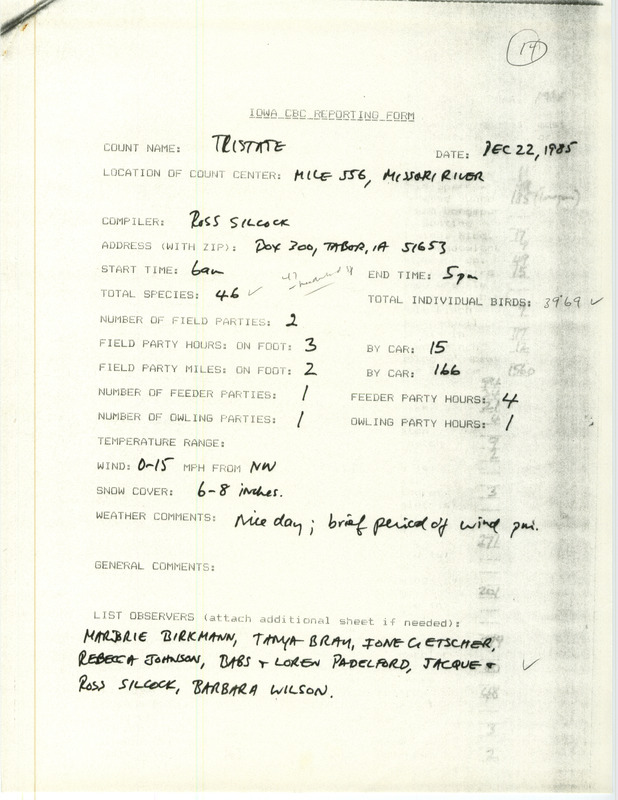 14
IOWA CBC REPORTING FORM
COUNT NAME: TRISTATE
DATE: DEC 22, 1985
LOCATION OF COUNT CENTER: MILE 556, MISSORI RIVER
COMPILER: ROSS SILCOCK
ADDRESS (WITH ZIP): BOX 300, TABOR, IA 51653
START TIME: 6am END TIME: 5pm
TOTAL SPECIES: 46 ✓ TOTAL INDIVIDUAL BIRDS: 3969 ✓
NUMBER OF FIELD PARTIES: 2
FIELD PARTY HOURS: ON FOOT: 3 BY CAR: 15
FIELD PARTY MILES: ON FOOT: 2 BY CAR: 166
NUMBER OF FEEDER PARTIES: 1 FEEDER PARTY HOURS: 4
NUMBER OF OWLING PARTIES: 1 OWLING PARTY HOURS: 1
TEMPERATURE RANGE:
WIND: 0-15 MPH FROM NW
SNOW COVER: 6-8 inches.
WEATHER COMMENTS: Nice day; brief period of wind pm.
GENERAL COMMENTS:
LIST OBSERVERS (attach additional sheet if needed):
MARJORIE BIRKMANN, TANYA BRAY, IONE GETSCHER,
REBECCA JOHNSON, BABS + LOREN PADELFORD, JACQUE + ✓
ROSS SILCOCK, BARBARA WILSON.